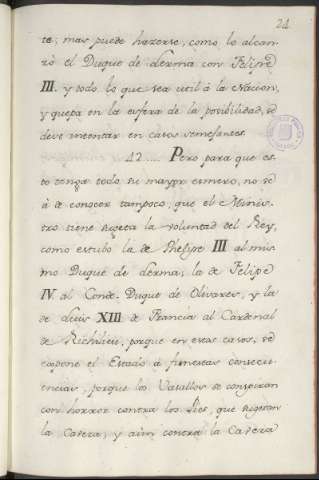 24
te; mas puede hazerse, como lo alcan-
zò el Duque de Lerma con Felipe
III. y todo lo que sea util à la Nacion,
y quepa en la esfera de la posibilidad, se
deve intentar en casos semejantes.
42.... Pero para que es-
to tenga todo su mayor esmero, no se
à de conocer tampoco, que el Minis-
tro tiene sujeta la voluntad del Rey,
como estubo la de Phelipe III al mis-
mo Duque de Lerma; la de Felipe
IV. al Conde-Duque de Olivares, y la
de Luis XIII de Francia al Cardenal
de Richilieu, porque en estas casos, se
expone el Estado à funestas consecu-
encias, porque los Vasallos se conspiran
con horror contra los Pies, que sujetan
la Cavera, y aùn contra la Cavera